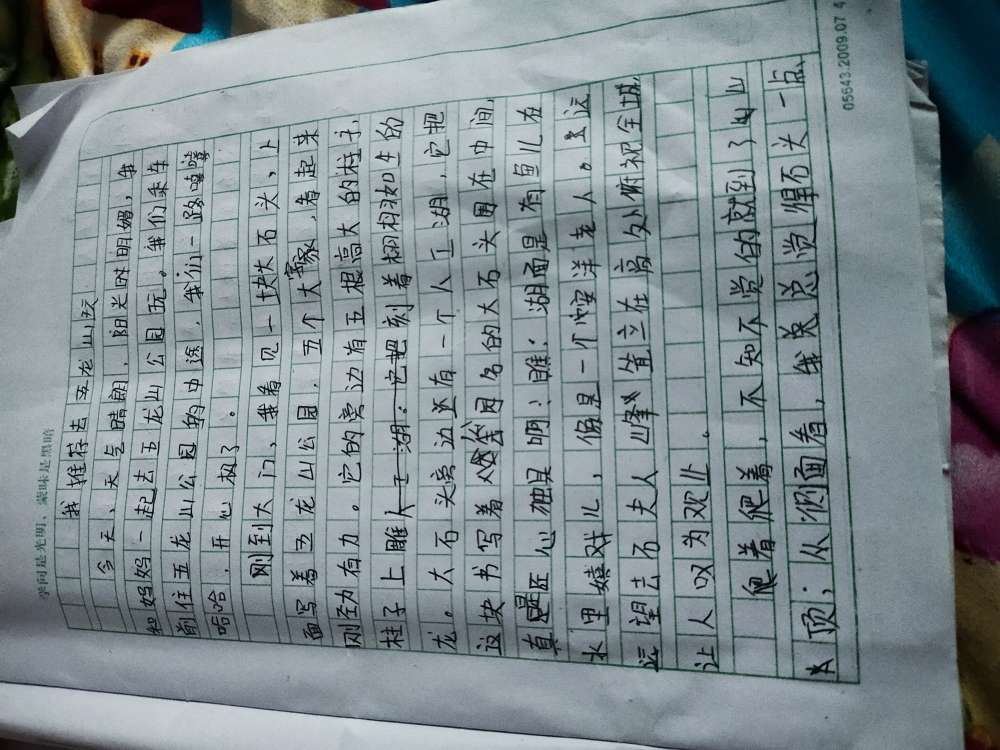 学问是光明，蒙昧是黑暗
我推荐去五龙山玩
今天，天气晴朗，阳光时明媚，我
和妈妈一起去五龙山公园玩。我们乘车
前往五龙山公园的中途，我们一路嘻嘻
哈哈，开心极了。
刚到大门，我看见一块大石头，上
面写着五龙山公园，五个大家，看起来
刚劲有力。它的旁边有五根高大的柱子，
柱子上雕着栩栩如生的
龙。大石头旁边还有一个人工湖，它把
这块书写着公园名的大石头围在中间，
真是匠心独具啊！瞧，湖面是有鱼儿在
水里嬉戏儿，像是一个安洋老人。远
远望去石夫人峰皆立在高处俯视全城，
让人叹为观止。
爬着爬着，不知不觉的就到了山
顶；从侧面看，我总觉得石头一点
05643.2009.07